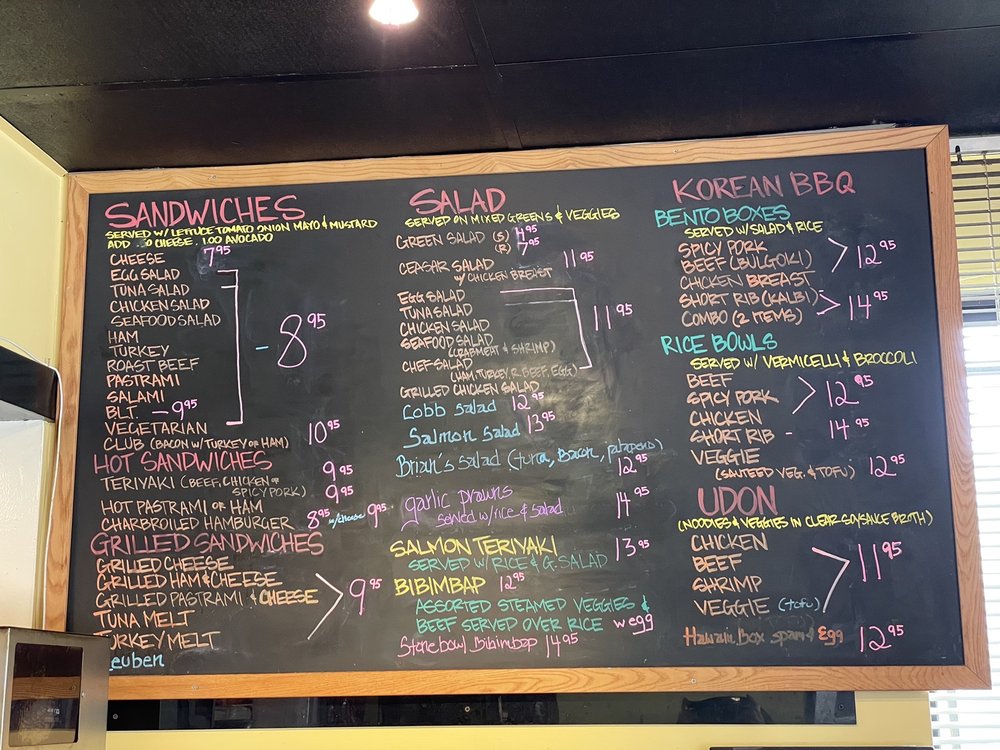 SANDWICHES
SERVED W/ LETTUCE TOMATO ONION MAYO & MUSTARD
ADD .50 CHEESE . 1.00 AVOCADO
CHEESE 7.95
EGG SALAD
TUNA SALAD
CHICKEN SALAD
SEAFOOD SALAD
HAM
TURKEY
- 8.95
ROAST BEEF
PASTRAMI
SALAMI
BLT. - 9.95
VEGETARIAN
CLUB (BACON W/ TURKEY or HAM) 10.95
HOT SANDWICHES
TERIYAKI (BEEF, CHICKEN or 9.95
SPICY PORK) 9.95
HOT PASTRAMI or HAM
CHARBROILED HAMBURGER 8.95 w/cheese 9.95
GRILLED SANDWICHES
GRILLED CHEESE
GRILLED HAM & CHEESE
GRILLED PASTRAMI & CHEESE 9.95
TUNA MELT
TURKEY MELT
euben
SALAD
SERVED ON MIXED GREENS & VEGGIES
GREEN SALAD (S) 4.95
(R) 7.95
CEASAR SALAD 11.95
W/ CHICKEN BREAST
EGG SALAD
TUNA SALAD
CHICKEN SALAD 11.95
SEAFOOD SALAD
(CRABMEAT & SHRIMP)
CHEF SALAD
(HAM, TURKEY, R. BEEF, EGG)
GRILLED CHICKEN SALAD
Cobb Salad 12.95
Salmon Salad 13.95
Brian's Salad (tuna, Bacon, jalapeno)
12.95
garlic prawns
served w/rice & salad 14.95
SALMON TERIYAKI 13.95
SERVED W/ RICE & G. SALAD
BIBIMBAP 12.95
ASSORTED STEAMED VEGGIES &
BEEF SERVED OVER RICE w egg
Stonebowl Bibimbap 14.95
KOREAN BBQ
BENTO BOXES
SERVED W/ SALAD & RICE
SPICY PORK
BEEF (BULGOKI) 12.95
CHICKEN BREAST
SHORT RIB (KALBI) 14.95
COMBO (2 ITEMS)
RICE BOWLS
SERVED W/ VERMICELLI & BROCCOLI
BEEF
SPICY PORK 12.95
CHICKEN
SHORT RIB - 14.95
VEGGIE
(SAUTEED VEG. & TOFU) 12.95
UDON
(NOODLES & VEGGIES IN CLEAR SOYSAUCE BROTH)
CHICKEN
BEEF 11.95
SHRIMP
VEGGIE (tofu)
Hawaii Box spam & Egg 12.95